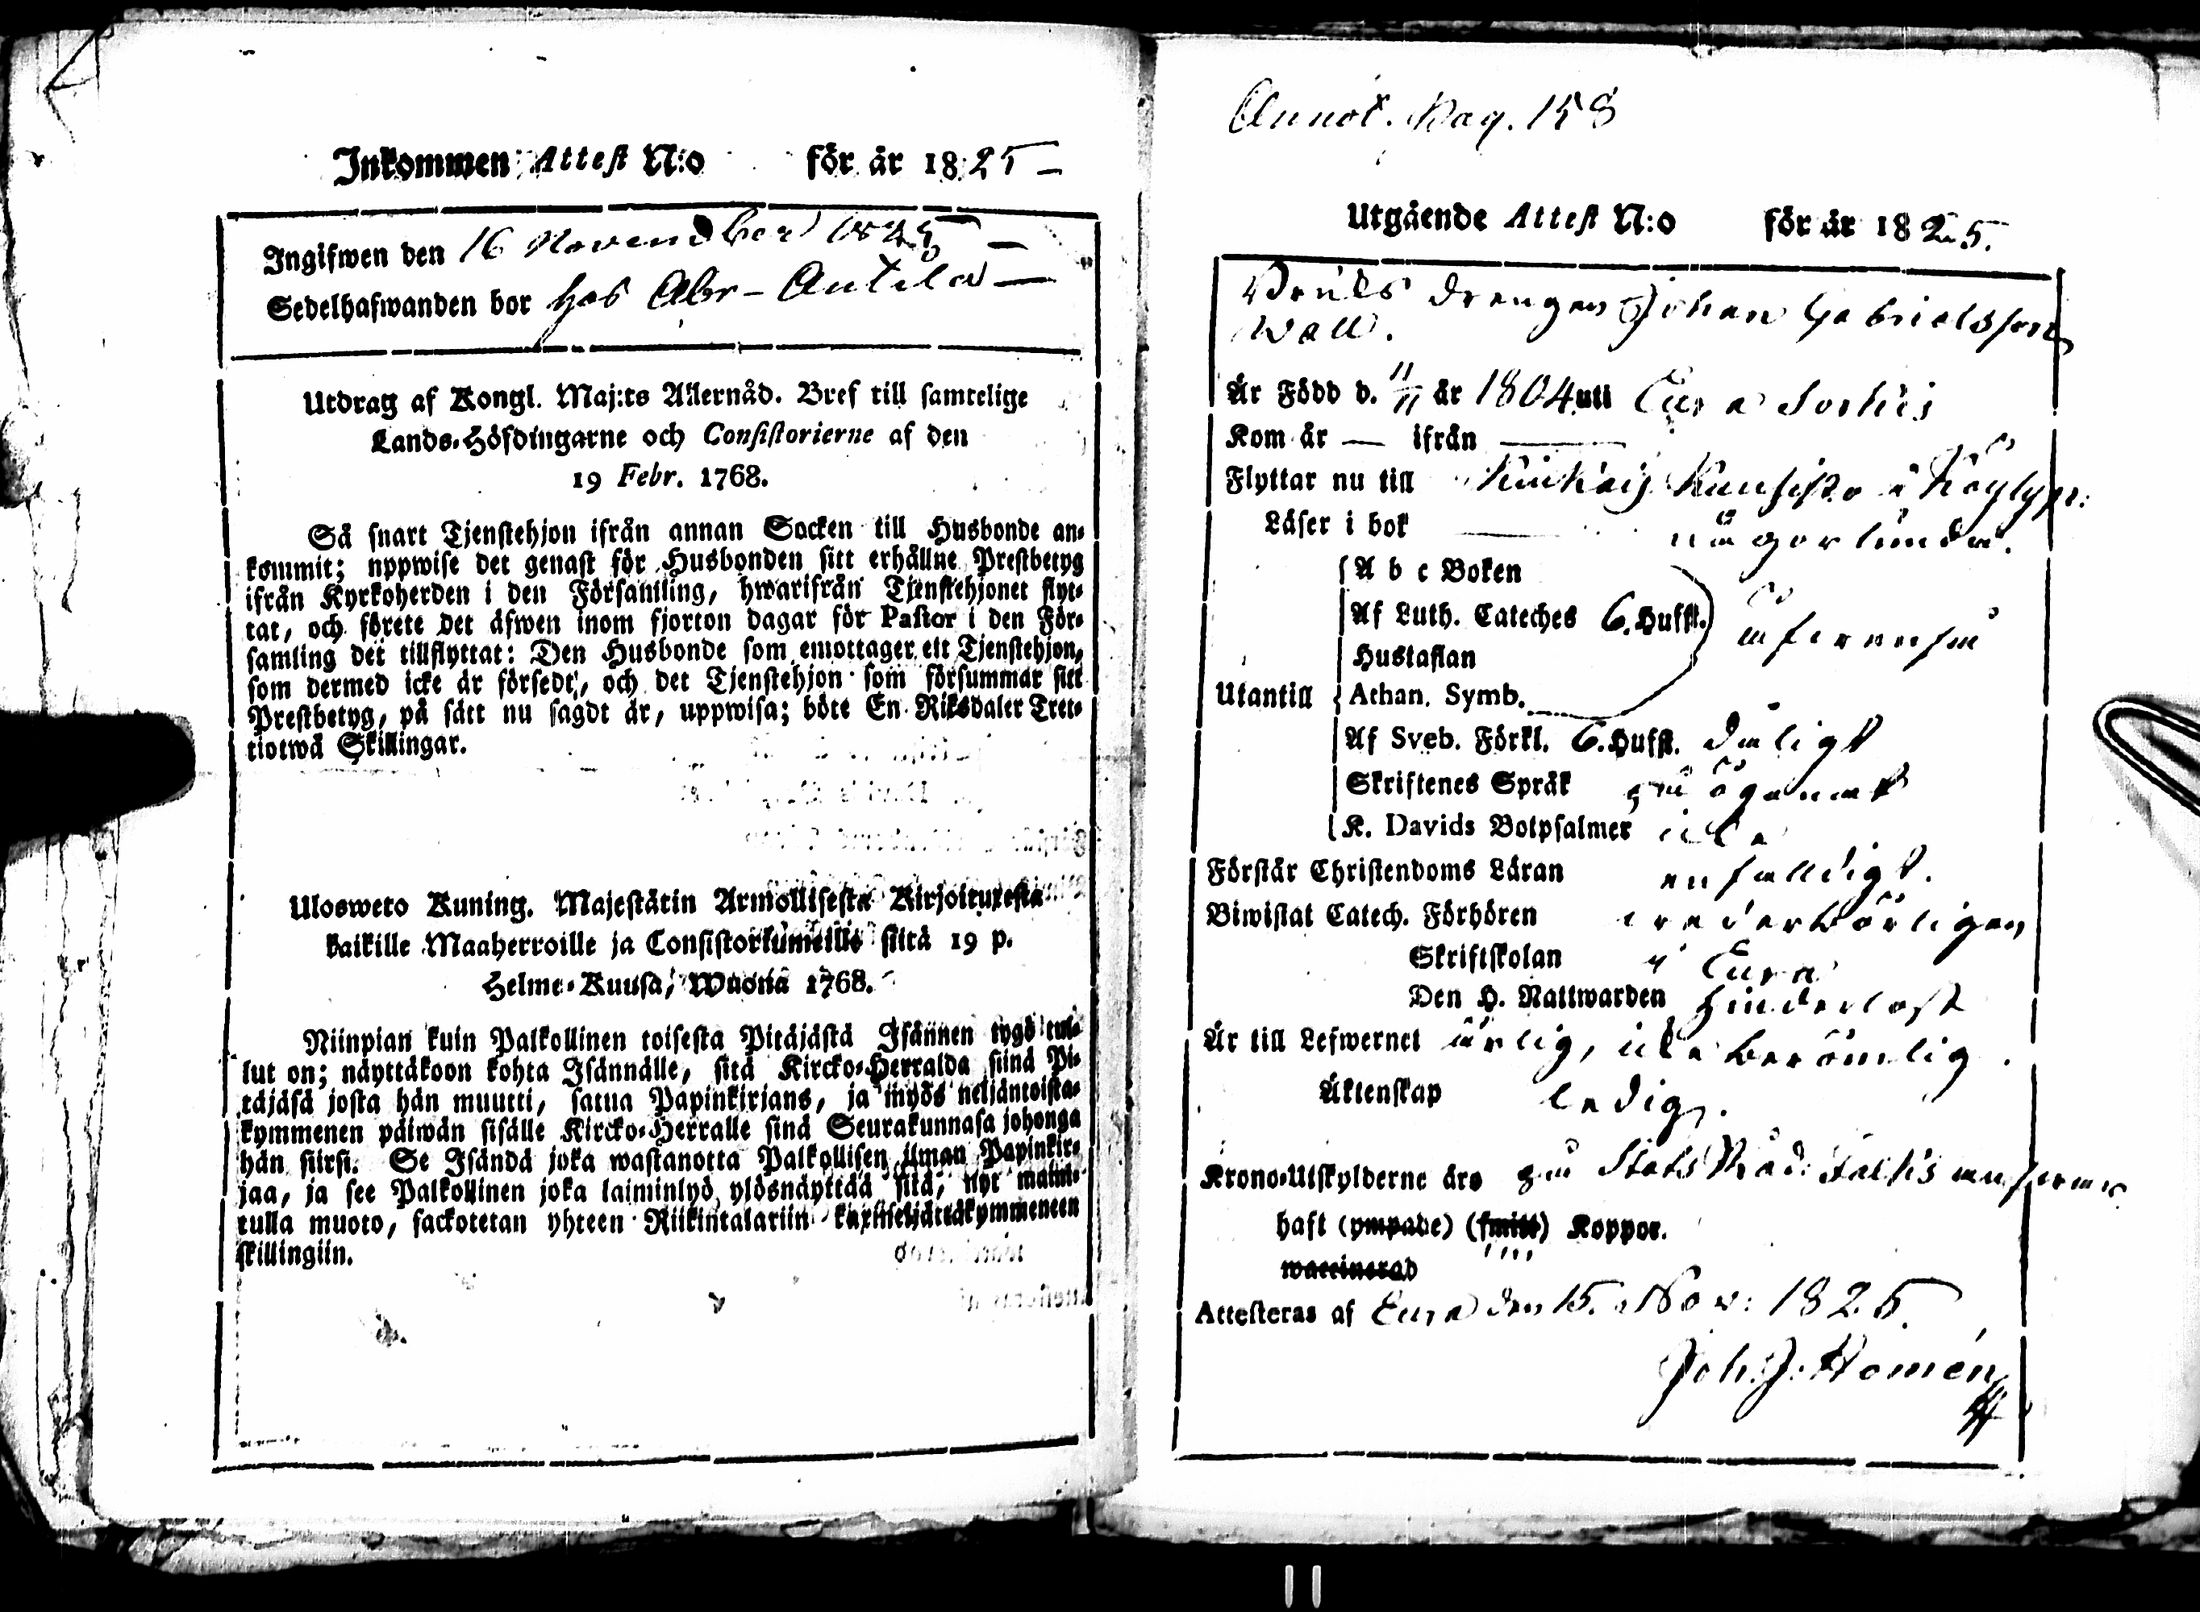 Inkommen Attest N:o för år 1825 –
Ingifwen den 16 November 1825 –
Sedelhafwanden bor hos Abr – Antila –
Utdrag af Kongl. Maj:ts Allernåd. Bref till samtelige
Lands-Höfdingarne och Consistorierne af den
19 Febr. 1768.
Så snart Tjenstehjon ifrån annan Socken till Husbonde an-
kommit; uppwise det genast för Husbonden sitt erhållne Prestbetyg
ifrån Kyrkoherden i den Församling, hwarifrån Tjenstehjonet flyt-
tat, och förete det äfwen inom fjorton dagar för Pastor i den För-
samling det tillflyttat: Den Husbonde som emottager ett Tjenstehjon,
som dermed icke är försedt, och det Tjenstehjon som försummar sitt
Prestbetyg, på sätt nu sagdt är, uppwisa; böte En Riksdaler Tret-
tiotwå Skillingar.
Ulosweto Kuning. Majestätin Armollisesta Kirjoituxesta
kaikille Maaherroille ja Consistoriumeille siitä 19 p.
Helme-Kuusa, Wuona 1768.
Niinpian kuin Palkollinen toisesta Pitäjästä Isännen tygö tul-
lut on; näyttäkoon kohta Isännälle, sitä Kircko-Herralda siinä Pi-
täjäsä josta hän muutti, satua Papinkirjans, ja myös neljäntoista-
kymmenen päiwän sisälle Kircko-Herralle sinä Seurakunnasa johonga
hän siirsi. Se Isändä joka wastanotta Palkollisen ilman Papinkir-
jaa, ja see Palkollinen joka laiminlyö ylösnäyttää sitä, nyt maini-
tulla muoto, sackotetan yhteen Riikintalariin kaxineljättäkymmeneen
skillingiin.
Annot. Pag. 158
Utgående Attest N:o för år 1825.
Bruks drengen Johan Gabrielsson
Wall.
Är Född d. 11/11 år 1804 uti Eura Sorkis
Kom år — ifrån —
Flyttar nu till Kankois Kansisto i Köylyp:
Läser i bok någorlunda.
A b c Boken
Af Luth. Cateches 6. Hufst.
Hustaflan
Utantill
Athan. Symb.
Af Sveb. Förkl. 6. Hufst. dåligt
Skriftenes Språk
K. Davids Botpsalmer icke
Förstår Christendoms Läran enfalldigt.
Biwistat Catech. Förhören wederbörligen
Skriftskolan i Eura
Den H. Nattwarden hinderlöst
Är till Lefwernet ärlig, icke berömlig.
Äktenskap ledig.
Krono-Utskylderne äro
haft (ympade) (smitt) Koppor.
waccinerad
Attesteras af Eura den 15. Nov: 1825.
Joh. J. Homén